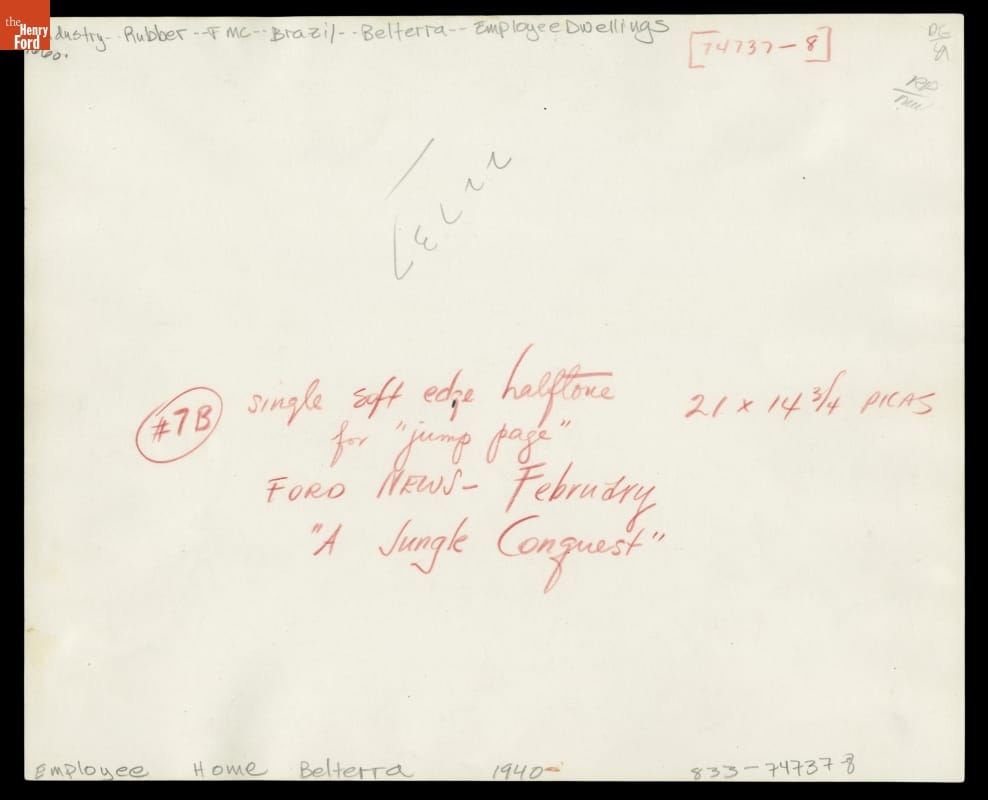 the
Henry
Ford
dustry--Rubber--FMC--Brazil--Belterra--Employee Dwellings
[74737-8]
DG
#7B
single soft edge halftone
21 x 14 3/4 PICAS
for "jump page"
FORD NEWS- February
"A Jungle Conquest"
Employee Home Belterra 1940- 833-74737 8